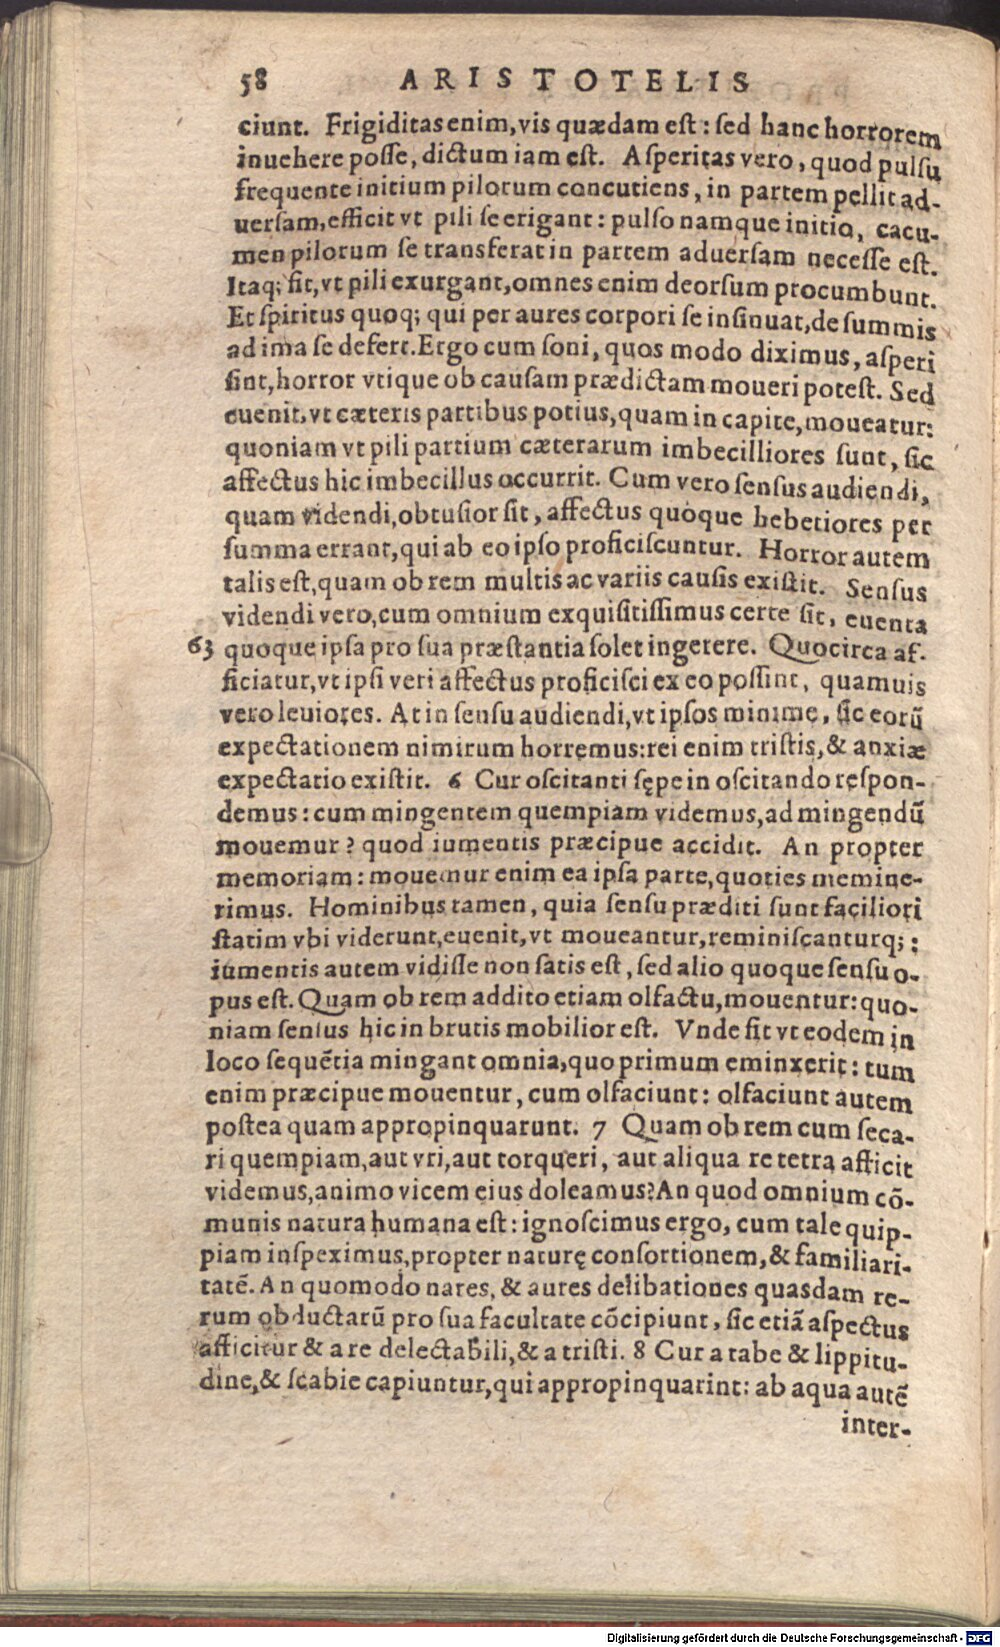 58 ARISTOTELIS
ciunt. Frigiditas enim, vis quædam est: sed hanc horrorem
inuehere posse, dictum iam est. Asperitas vero, quod pulsu
frequente initium pilorum concutiens, in partem pellit ad-
uersam, efficit vt pili se erigant: pulso namque initio, cacu-
men pilorum se transferat in partem aduersam necesse est.
Itaq; fit, vt pili exurgant, omnes enim deorsum procumbunt.
Et spiritus quoq; qui per aures corpori se insinuat, de summis
ad ima se defert. Ergo cum soni, quos modo diximus, asperi
sint, horror vtique ob causam prædictam moueri potest. Sed
euenit, vt cæteris partibus potius, quam in capite, moueatur:
quoniam vt pili partium cæterarum imbecilliores sunt, sic
affectus hic imbecillus occurrit. Cum vero sensus audiendi,
quam videndi, obtusior sit, affectus quoque hebetiores per
summa errant, qui ab eo ipso proficiscuntur. Horror autem
talis est, quam ob rem multis ac variis causis existit. Sensus
videndi vero, cum omnium exquisitissimus certe sit, euenta
63 quoque ipsa pro sua præstantia solet ingerere. Quocirca af-
ficiatur, vt ipsi veri affectus proficisci ex eo possint, quamuis
vero leuiores. At in sensu audiendi, vt ipsos minime, sic eorũ
expectationem nimirum horremus: rei enim tristis, & anxiæ
expectatio existit. 6 Cur oscitanti sępe in oscitando respon-
demus: cum mingentem quempiam videmus, ad mingendũ
mouemur? quod iumentis præcipue accidit. An propter
memoriam: mouemur enim ea ipsa parte, quoties memine-
rimus. Hominibus tamen, quia sensu præditi sunt faciliori
statim vbi viderunt, euenit, vt moueantur, reminiscanturq;:
iumentis autem vidisse non satis est, sed alio quoque sensu o-
pus est. Quam ob rem addito etiam olfactu, mouentur: quo-
niam sensus hic in brutis mobilior est. Vnde fit vt eodem in
loco sequẽtia mingant omnia, quo primum eminxerit: tum
enim præcipue mouentur, cum olfaciunt: olfaciunt autem
postea quam appropinquarunt. 7 Quam ob rem cum seca-
ri quempiam, aut vri, aut torqueri, aut aliqua re tetra afficit
videmus, animo vicem eius doleamus? An quod omnium cõ-
munis natura humana est: ignoscimus ergo, cum tale quip-
piam inspeximus, propter naturę consortionem, & familiari-
tatẽ. An quomodo nares, & aures delibationes quasdam re-
rum obductarũ pro sua facultate cõcipiunt, sic etiã aspectus
afficitur & a re delectabili, & a tristi. 8 Cur a tabe & lippitu-
dine, & scabie capiuntur, qui appropinquarint: ab aqua autẽ
inter-
Digitalisierung gefördert durch die Deutsche Forschungsgemeinschaft - DFG